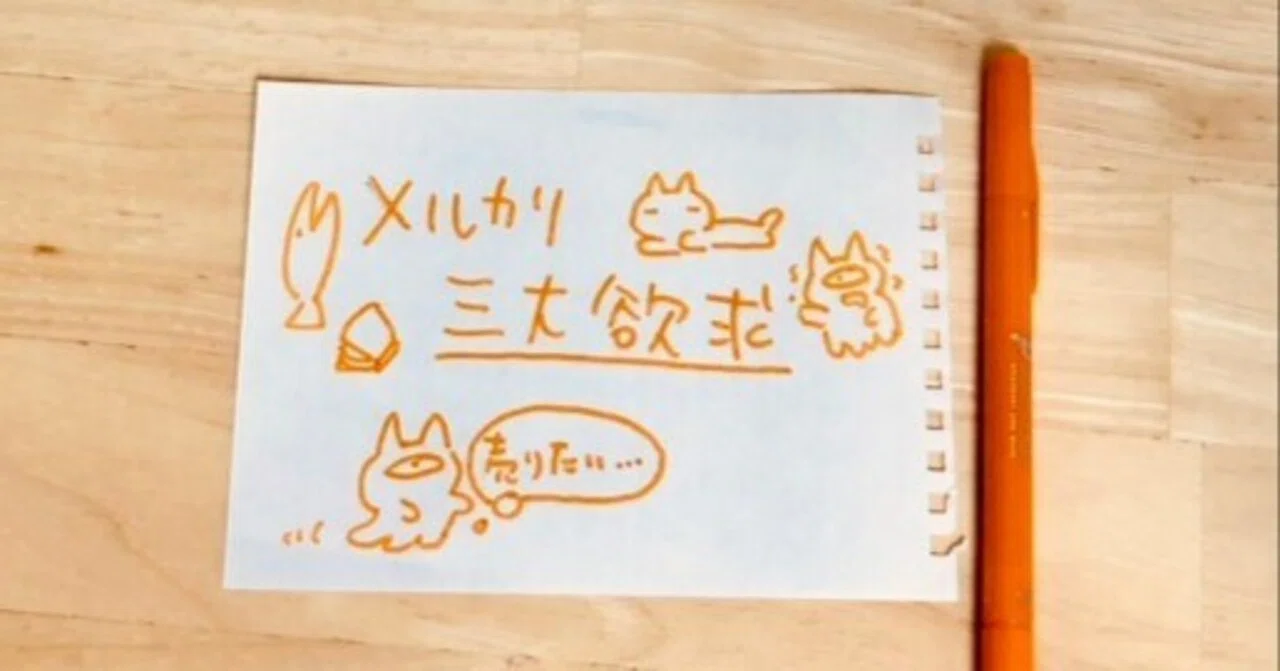 メルカリ
三大欲求
売りたい…